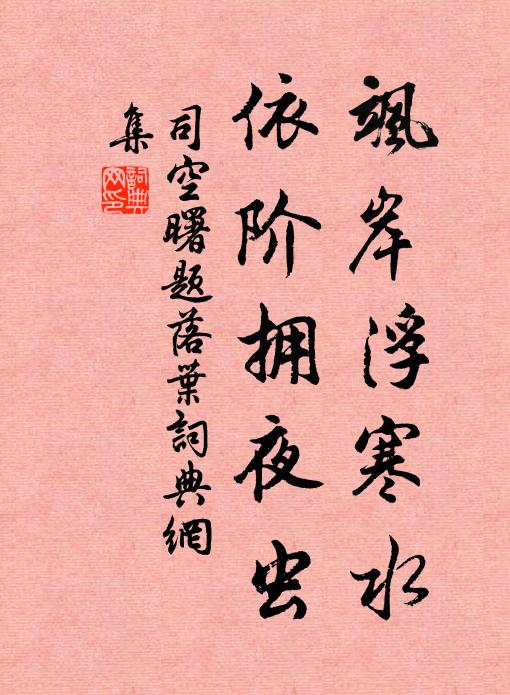 飒岸浮寒水
依阶拥夜虫
司空曙题落葉詞典網
集
詞典网印